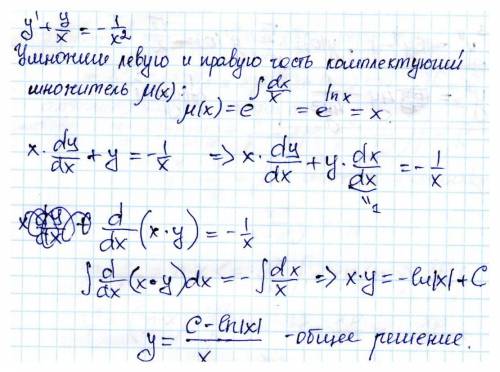 y' + y/x = -1/x²
Умножим левую и правую часть комплектующий
множитель μ(x):
μ(x) = e^{∫dx/x} = e^{ln x} = x
x · dy/dx + y = -1/x => x · dy/dx + y · dx/dx = -1/x
"1
d/dx (x·y) = -1/x
∫ d/dx (x·y) dx = -∫ dx/x => x·y = -ln|x| + C
y = (C - ln|x|)/x - общее решение.